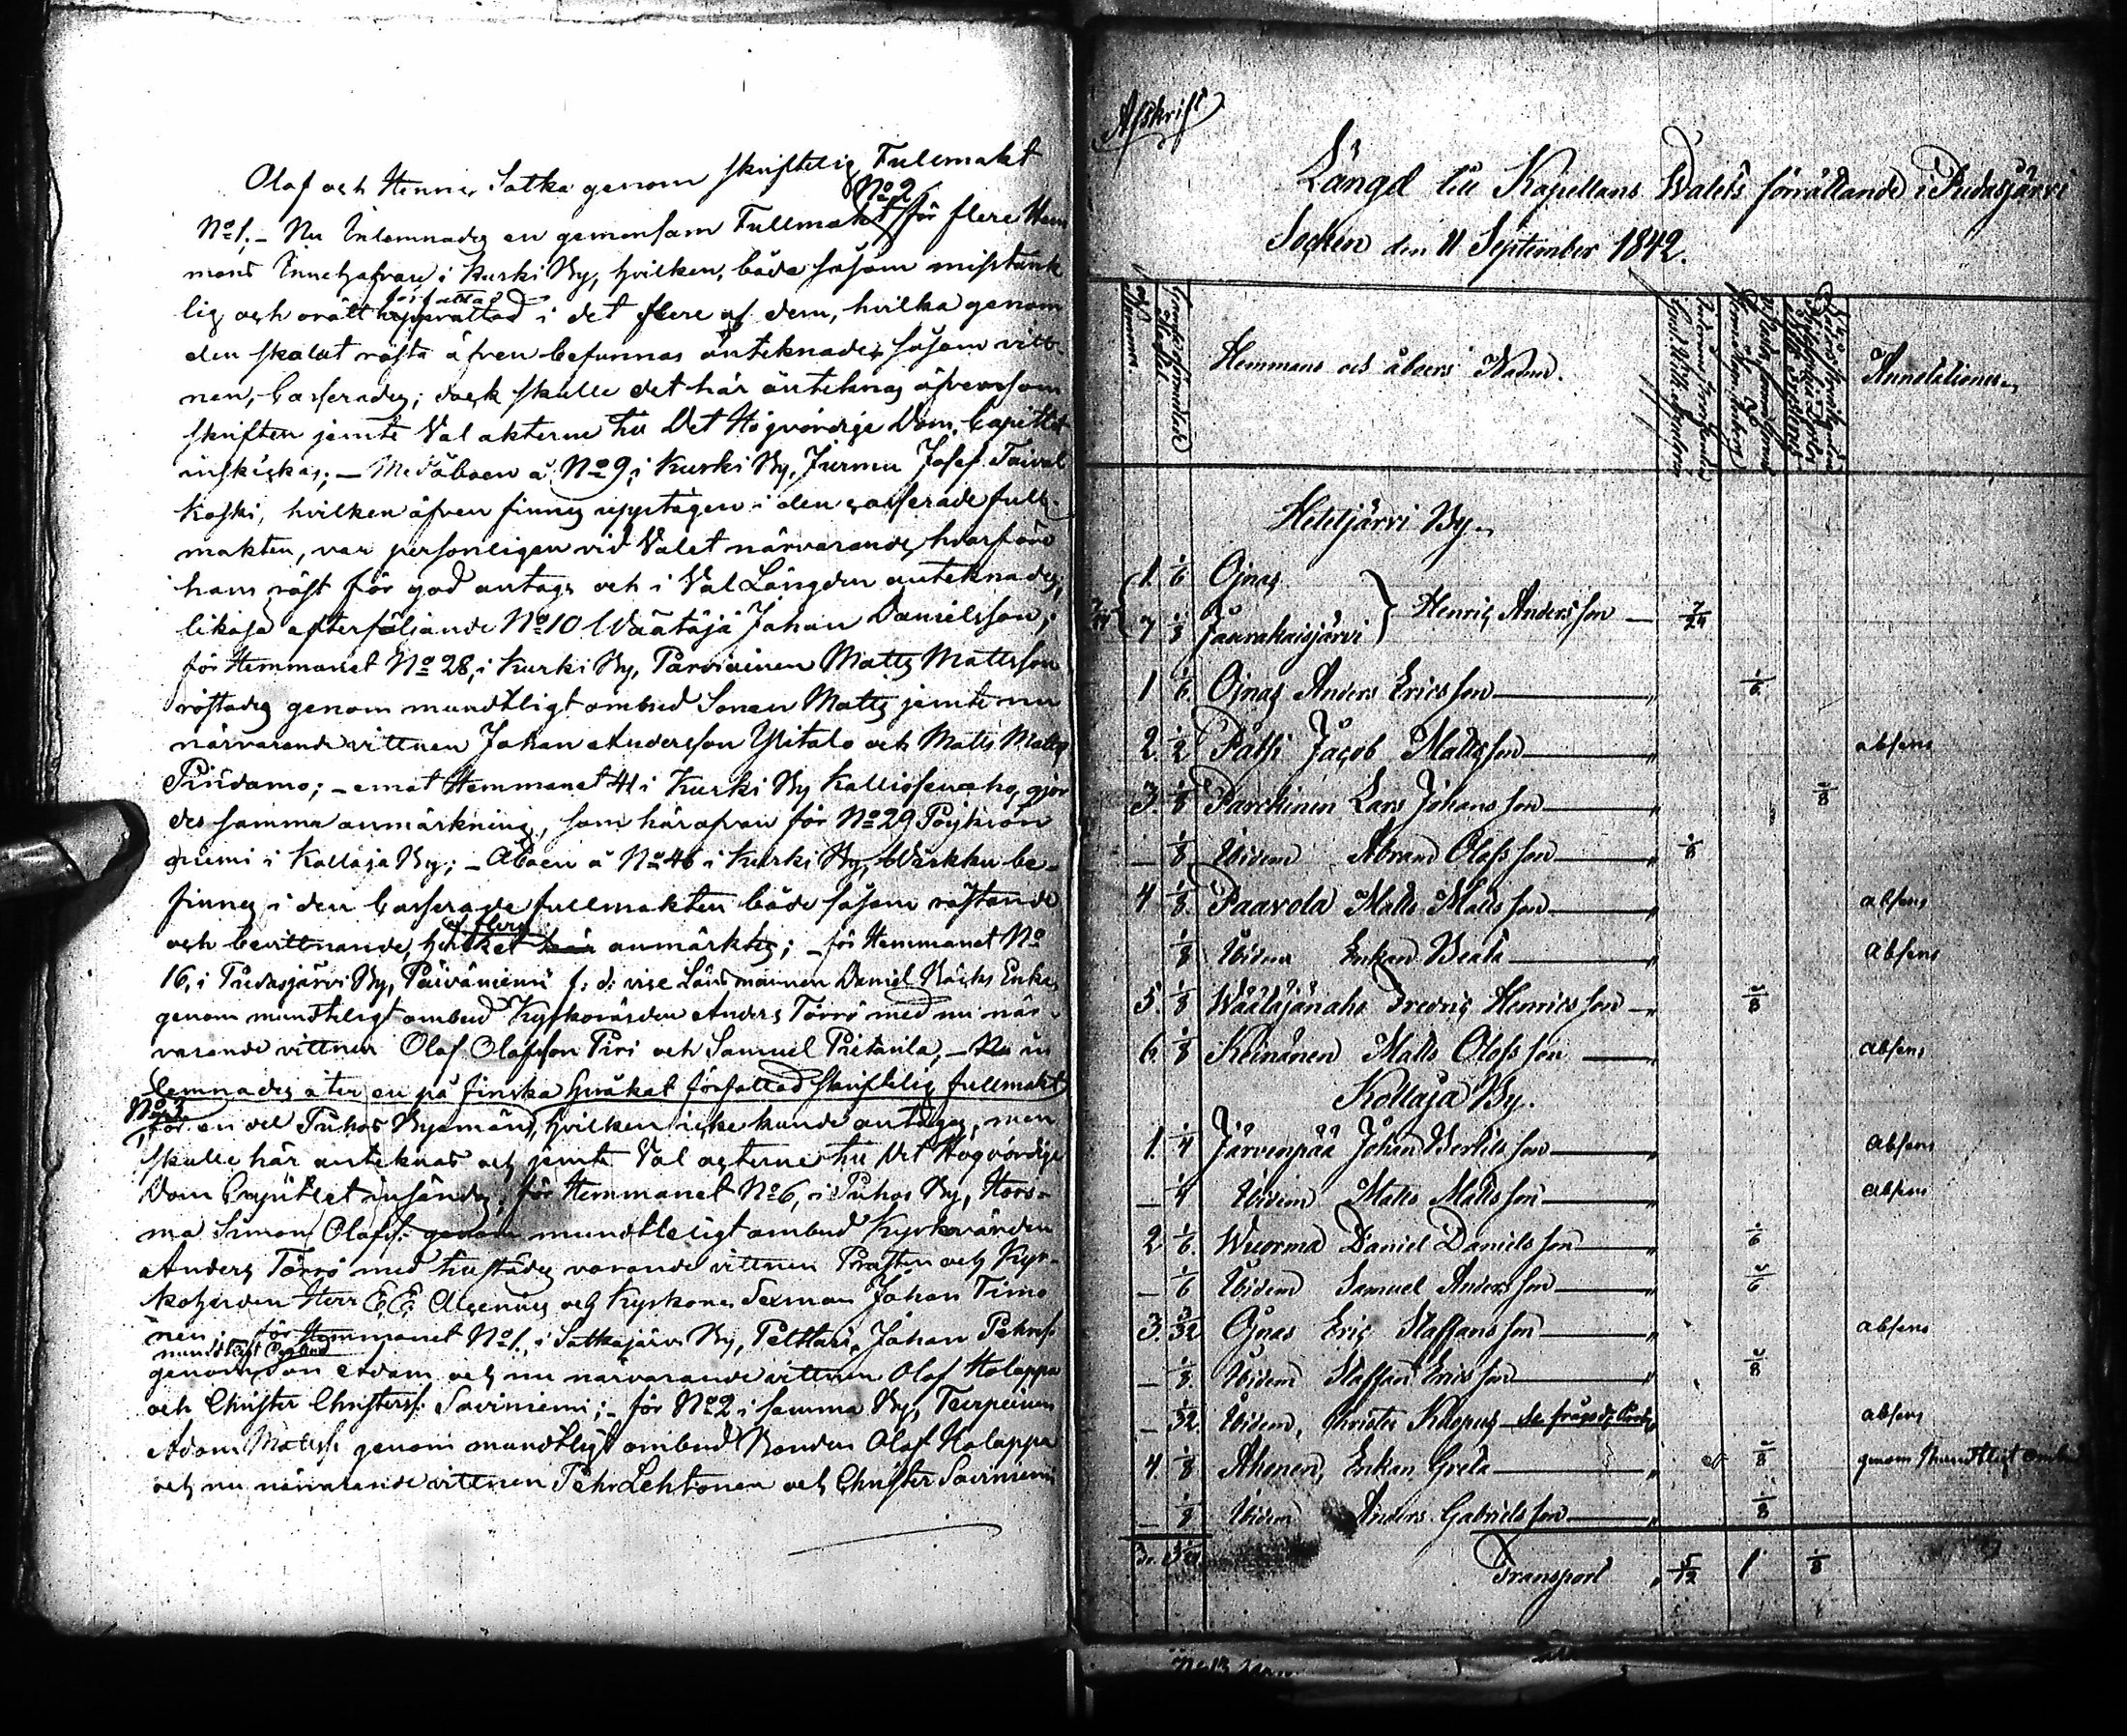 Olaf och Henric Satka genom skriftelig Fullmakt
No 1. – Nu Inlemnades en gemensam Fullmakt No 2 för flere Hem
mans Innehafvare i Kurki By, hvilken, både såsom misstänk
lig och orätt författad i det flere af dem, hvilka genom
den skolat rösta äfven befunnos antecknade såsom vitt-
nen, Casserades; dock skulle det här antecknas äfvensom
skriften jemte Val akterne till Det Högvördige Dom. Capitlet
inskickas; – Med åboen å No 9 i Kurki By, Jurmu Josef Taival
koski, hvilken äfven finnes upptagen i den casserade full-
makten, var personligen vid Valet närvarande, hvarföre
hans röst för god antogs och i Val Längden antecknades,
likaså efterföljande No 10 Väätäjä Johan Danielsson;
för Hemmanet No 28, i Kurki By, Parviainen Matts Mattsson
röstades genom mundtligt ombud Sonen Matts jemte nu
närvarande vittnen Johan Andersson Ylitalo och Matts Matts
Pirdamo; – emot Hemmanet 41 i Kurki By Kalliosenaho, gjor
des samma anmärkning, som härofvan för No 29 Pöykiön
niemi i Kollaja By; – Åboen å No 46 i Kurki By, Wirkku be-
finnes i den Casserade fullmakten både såsom röstande
och bevittnande, hvilket anmärktes; – för Hemmanet No
16, i Pudasjärvi By, Päiväniemi f: d: vice Länsmannen Daniel Bäcks Enka,
genom mundtligt ombud Kyrkovärden Anders Törrö med nu när-
varande vittnen Olaf Olofsson Piri och Samuel Pietarila, – Nu in
lemnades åter en på finska språket författad skriftelig fullmakt
No 3 för en del Puhos Byamän, hvilken icke kunde antagas, men
skulle här antecknas och jemte Val acterne till Det Högvördige
Dom Capitlet insändas; för Hemmanet No 6, i Puhos By, Hors-
ma Simon Olofss: genom mundtligt ombud Kyrkovärden
Anders Törrö med tillstädes varande vittnen Prosten och Kyr-
koherden Herr E. E. Alcenius och Kyrkones Sexman Johan Timo
nen; för Hemmanet No 1, i Sotkajärvi By, Pelttari, Johan Pehrss:
mundtligt Ombud
genom son Adam och nu närvarande vittnen Olof Holappa
och Christer Christerss: Soviniemi; – för No 2 i samma By, Teirpeinen
Adam Matss: genom mundtligt ombud Bonden Olof Holappa
och nu närvarande vittnen Pehr Lehtonen och Christer Soviniemi
Afskrift
Längd till Kapellans Walets förrättande i Pudasjärvi
Socken den 11 September 1842.
Hemmans och åboers Namn. Annotationer
Hetejärvi By.
1. 1/6 Ojnas } Henric Andersson – 7/24
7/24 { 7 1/8 Jaurakaisjärvi
1 1/6. Ojnas Anders Ericsson – " 1/6
2. 1/2 Pätsi Jacob Mattsson – " absens
3. 1/8 Parckinen Lars Johansson – " 1/8
– 1/8 Ibidem Abram Olofsson – " 1/8
4 1/8. Paavola Matts Mattsson – " absens
1/8 Ibidem Enkan Beata – " Absens
5. 1/8 Wäätäjänaho Fredric Henricsson – " 1/8
6. 1/8 Keinänen Matts Olofsson – " Absens
Kollaja By.
1. 1/4 Järvenpää Johan Bertilsson – " Absens
– 1/4 Ibidem Matts Mattsson – " Absens
2 1/6. Wuorma Daniel Danielsson – " 1/6
– 1/6 Ibidem Samuel Andersson – " 1/6
3. 3/32 Ojnas Eric Staffansson – " absens
– 1/8. Ibidem Staffan Ericsson – " 1/8
– 1/32. Ibidem, Christer – " absens
4. 1/8 Ahonen, Enkan Greta – " 1/8 genom Mundtligt omb
– 1/8 Ibidem Anders Gabrielsson – " 1/8
Transport " 5/12 1 1/8